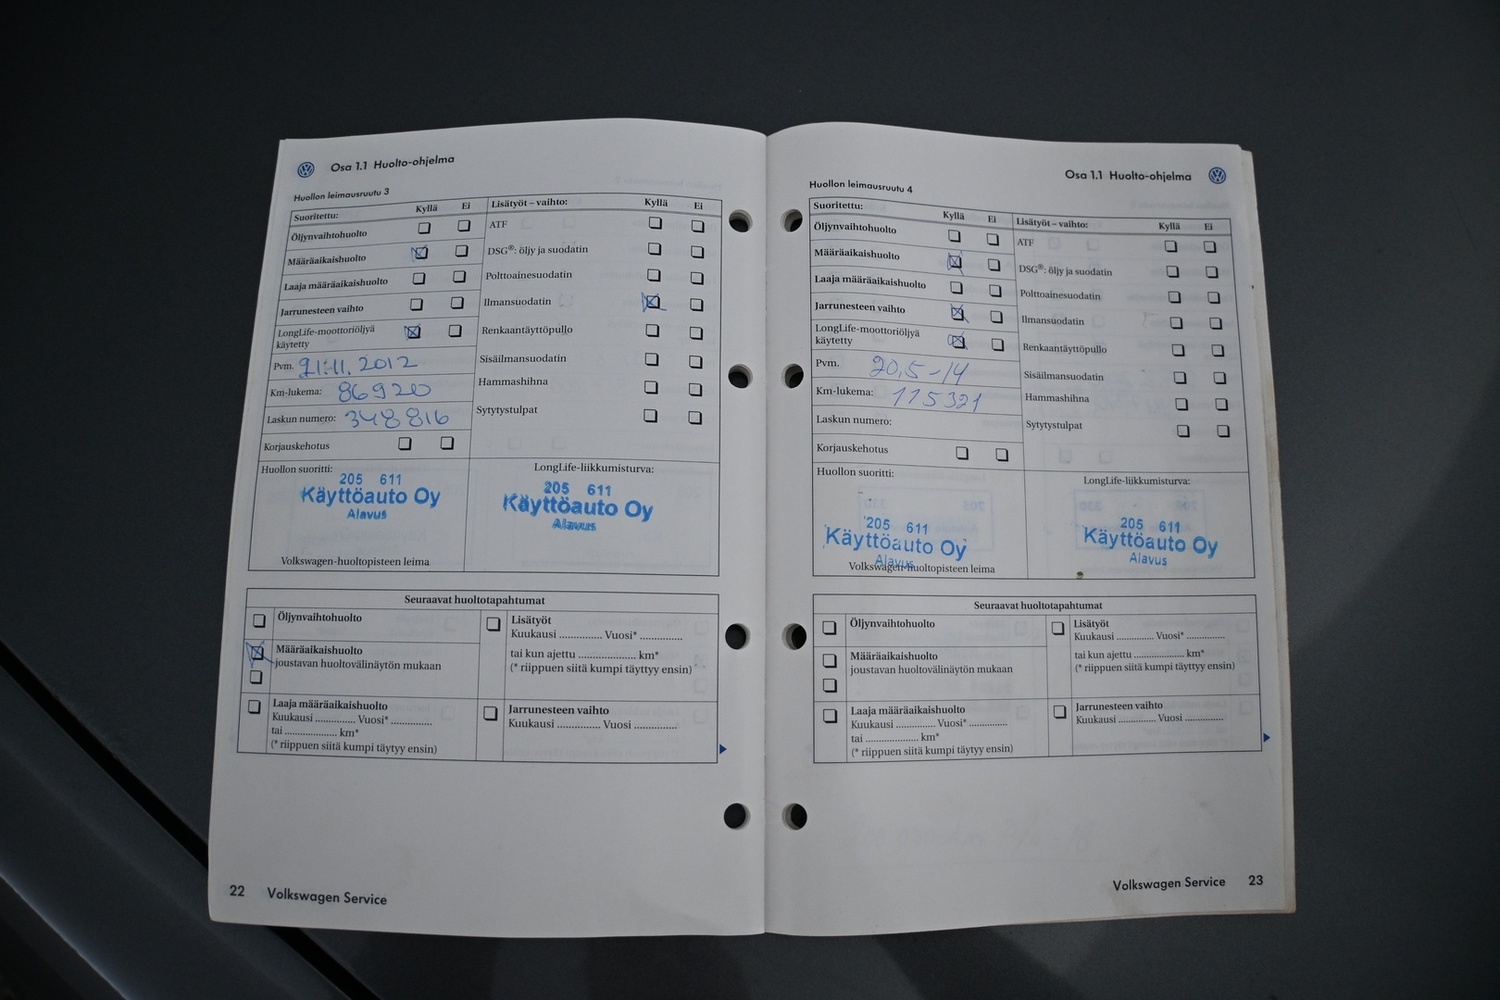 Osa 1.1 Huolto-ohjelma
Huollon leimausruutu 3
Suoritettu: Kyllä Ei
Öljynvaihtohuolto
Määräaikaishuolto
Laaja määräaikaishuolto
Jarrunesteen vaihto
LongLife-moottoriöljyä
käytetty
Pvm. 21.11.2012
Km-lukema: 86920
Laskun numero: 348816
Korjauskehotus
Lisätyöt – vaihto: Kyllä Ei
ATF
DSG®: öljy ja suodatin
Polttoainesuodatin
Ilmansuodatin
Renkaantäyttöpullo
Sisäilmansuodatin
Hammashihna
Sytytystulpat
Huollon suoritti:
205 611
Käyttöauto Oy
Alavus
Volkswagen-huoltopisteen leima
LongLife-liikkumisturva:
205 611
Käyttöauto Oy
Alavus
Seuraavat huoltotapahtumat
Öljynvaihtohuolto
Määräaikaishuolto
joustavan huoltovälinäytön mukaan
Laaja määräaikaishuolto
Kuukausi .............. Vuosi* ..............
tai .................... km*
(* riippuen siitä kumpi täytyy ensin)
Lisätyöt
Kuukausi .............. Vuosi* ..............
tai kun ajettu .................... km*
(* riippuen siitä kumpi täyttyy ensin)
Jarrunesteen vaihto
Kuukausi .............. Vuosi ..............
22 Volkswagen Service
Osa 1.1 Huolto-ohjelma
Huollon leimausruutu 4
Suoritettu: Kyllä Ei
Öljynvaihtohuolto
Määräaikaishuolto
Laaja määräaikaishuolto
Jarrunesteen vaihto
LongLife-moottoriöljyä
käytetty
Pvm. 20.5-14
Km-lukema: 115321
Laskun numero:
Korjauskehotus
Lisätyöt – vaihto: Kyllä Ei
ATF
DSG®: öljy ja suodatin
Polttoainesuodatin
Ilmansuodatin
Renkaantäyttöpullo
Sisäilmansuodatin
Hammashihna
Sytytystulpat
Huollon suoritti:
205 611
Käyttöauto Oy
Alavus
Volkswagen-huoltopisteen leima
LongLife-liikkumisturva:
205 611
Käyttöauto Oy
Alavus
Seuraavat huoltotapahtumat
Öljynvaihtohuolto
Määräaikaishuolto
joustavan huoltovälinäytön mukaan
Laaja määräaikaishuolto
Kuukausi .............. Vuosi* ..............
tai .................... km*
(* riippuen siitä kumpi täytyy ensin)
Lisätyöt
Kuukausi .............. Vuosi* ..............
tai kun ajettu .................... km*
(* riippuen siitä kumpi täyttyy ensin)
Jarrunesteen vaihto
Kuukausi .............. Vuosi ..............
Volkswagen Service 23